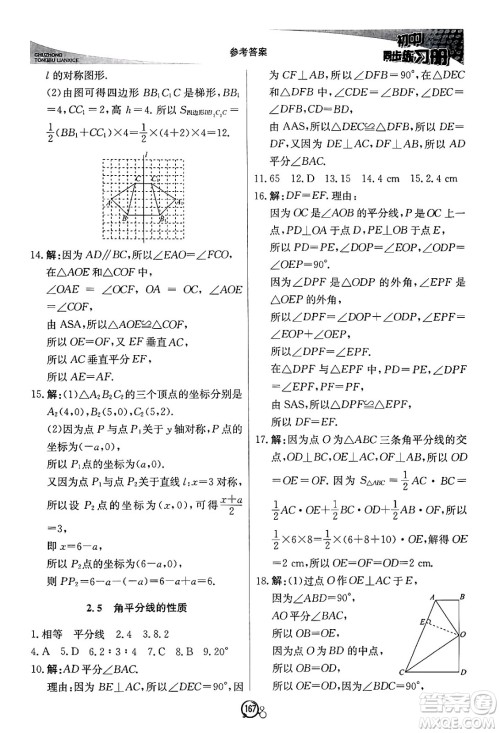 CHUZHONG
TONGBU LIANXICE
参考答案
初中
同步练习册
l 的对称图形.
(2)由图可得四边形 BB₁C₁C 是梯形, BB₁
=4, CC₁=2, 高 h=4. 所以 S四边形BB₁C₁C=
1/2(BB₁+CC₁)×4=1/2×(4+2)×4=12.
l
A
B
B₁
14. 解:因为 AD∥BC,所以∠EAO=∠FCO.
在△AOE 和△COF 中,
∠OAE=∠OCF, OA=OC, ∠AOE=
∠COF,
由 ASA,所以△AOE≌△COF.
所以 OE=OF. 所以 AC 垂直平分 EF.
所以 AE=AF.
15. 解:(1)△A₂B₂C₂ 的三个顶点的坐标分别是
A₂(4,0), B₂(5,0), C₂(5,2).
(2)因为点 P 与点 P₁ 关于 y 轴对称, P(-a,0),
所以 P₁ 点的坐标为(a,0).
又因为点 P₁ 与点 P₂ 关于直线 l:x=3 对
称,所以设 P₂ 点的坐标为(x,0),可得 (x+a)/2
=3,
即 x=6-a,
所以 P₂ 点的坐标为(6-a,0).
则 PP₂=6-a-(-a)=6-a+a=6.
2.5 角平分线的性质
1. 相等 平分线 2. 4 3. 8. 2
4. A 5. D 6. 2∶3∶4 7. D 8. B 9. 20°
10. 解:AD 平分∠BAC.
理由:因为 BE⊥AC,所以∠DEC=90°. 因
为 CF⊥AB,所以∠DFB=90°,在△DEC
和△DFB 中, ∠CDE=∠BDF, ∠DEC=
∠DFB, DC=DB,
由 AAS,所以△DEC≌△DFB,
所以 DE=DF. 又 DE⊥AC, DF⊥AB,所以
AD 平分∠BAC.
11. 65 12. D 13. D 14. 4 cm 15. 2. 4 cm
16. 解:DF=EF. 理由:
因为 OC 是∠AOB 的平分线,点 P 是 OC
上一点, PD⊥OA 于点 D, PE⊥OB 于点 E,
所以 PD=PE,
所以∠DOP=∠EOP, ∠ODP=
∠OEP=90°.
因为∠DPF 是△DOP 的外角, ∠EPF 是
△OEP 的外角,
所以∠DPF=∠DOP+∠ODP,
∠EPF=∠EOP+∠OEP.
所以∠DPF=∠EPF.
在△DPF 和△EPF 中, PD=PE, ∠DPF
=∠EPF, PF=PF,
由 SAS,所以△DPF≌△EPF.
所以 DF=EF.
17. 解:因为点 O 为△ABC 三条角平分线的交
点,所以 OE=OF=OD.
因为 S△ABC=1/2×6×8=1/2×AC×OE+
1/2×AB×OF+1/2×BC×OD,
1/2×6×8=1/2×(6+8+10)×OE,
所以 OE=2,所以 OE=OF=OD=
2 cm.
18. 解:(1)过点 O 作 OE⊥AC 于点 E.
因为∠ABD=
90°, OA 平分
∠BAC,
所以 OB=OE.
因为点 O 为 BD
的中点,
所以 OB=OD,
所以 OE=OD,
A
B
E
O
C
D
167